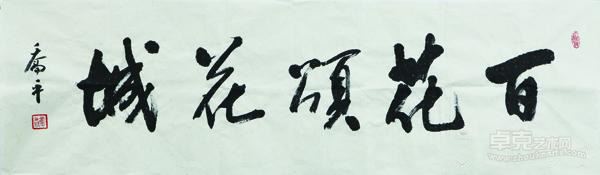 百花頌花城
喬平
卓克艺术网